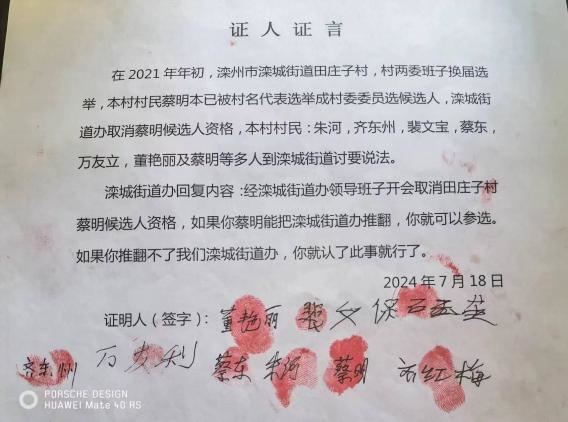 证人证言
在2021年年初，滦州市滦城街道田庄子村，村两委班子换届选
举，本村村民蔡明本已被村名代表选举成村委委员选候选人，滦城街
道办取消蔡明候选人资格，本村村民：朱河，齐东州，裴文宝，蔡东，
万友立，董艳丽及蔡明等多人到滦城街道讨要说法。
滦城街道办回复内容：经滦城街道办领导班子开会取消田庄子村
蔡明候选人资格，如果你蔡明能把滦城街道办推翻，你就可以参选。
如果你推翻不了我们滦城街道办，你就认了此事就行了。
2024年7月18日
证明人（签字）：董艳丽 裴文保
齐东州 万友利 蔡东 朱河 蔡明 齐红梅
PORSCHE DESIGN
HUAWEI Mate 40 RS